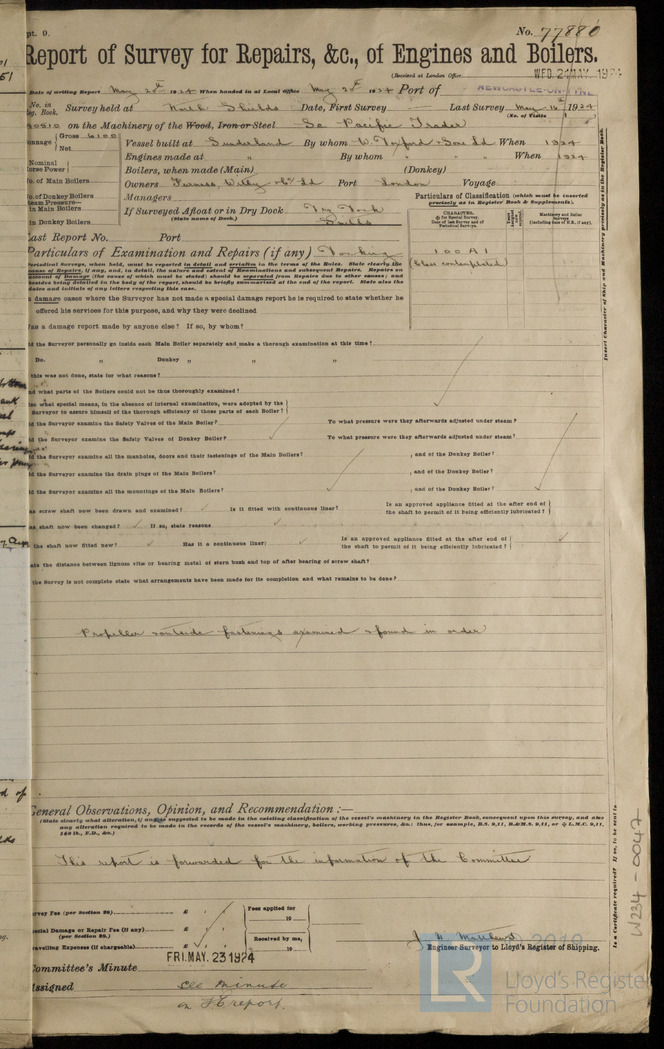 pt. 9.
No. 77880
Report of Survey for Repairs, &c., of Engines and Boilers.
(Received at London Office WED. 21 MAY. 1924
Date of writing Report May 20th 1924 When handed in at Local Office May 20th 1924 Port of NEWCASTLE-ON-TYNE
No. in Reg. Book. Survey held at North Shields Date, First Survey Last Survey May 16th 1924
(No. of Visits 1 )
on the Machinery of the Wood, Iron or Steel S.S. Pacific Trader
Tonnage Gross 6100
Net
Vessel built at Sunderland By whom W. Doxford & Sons Ld When 1924
Engines made at " By whom " " When 1924
Nominal Horse Power
Boilers, when made (Main) (Donkey)
No. of Main Boilers
Owners Furness, Withy & Co Ld Port London Voyage
No. of Donkey Boilers
Managers
Steam Pressure—
in Main Boilers
in Donkey Boilers
If Surveyed Afloat or in Dry Dock Dry Dock
(State name of Dock.) Smiths
Particulars of Classification (which must be inserted precisely as in Register Book & Supplements).
Last Report No. Port
Particulars of Examination and Repairs (if any) Docking
100A1
(Class contemplated)
Periodical Surveys, when held, must be reported in detail and seriatim in the terms of the Rules. State clearly the
causes of Repairs, if any, and, in detail, the nature and extent of Examinations and subsequent Repairs. Repairs on
account of Damage (the cause of which must be stated) should be separated from Repairs due to other causes; and
besides being detailed in the body of the report, should be briefly summarised at the end of the report. State also the
dates and initials of any letters respecting this case.
In damage cases where the Surveyor has not made a special damage report he is required to state whether he
offered his services for this purpose, and why they were declined
Was a damage report made by anyone else? If so, by whom?
Did the Surveyor personally go inside each Main Boiler separately and make a thorough examination at this time?
Do. " Donkey " " "
If this was not done, state for what reasons?
And what parts of the Boilers could not be thus thoroughly examined?
Also what special means, in the absence of internal examination, were adopted by the
Surveyor to assure himself of the thorough efficiency of those parts of each Boiler?
Did the Surveyor examine the Safety Valves of the Main Boiler? To what pressure were they afterwards adjusted under steam?
Did the Surveyor examine the Safety Valves of Donkey Boiler? To what pressure were they afterwards adjusted under steam?
Did the Surveyor examine all the manholes, doors and their fastenings of the Main Boilers? , and of the Donkey Boiler?
Did the Surveyor examine the drain plugs of the Main Boilers? , and of the Donkey Boiler?
Did the Surveyor examine all the mountings of the Main Boilers? , and of the Donkey Boiler?
Has screw shaft now been drawn and examined? Is it fitted with continuous liner? Is an approved appliance fitted at the after end of
the shaft to permit of it being efficiently lubricated?
Has shaft now been changed? If so, state reasons
Is the shaft now fitted new? Has it a continuous liner? Is an approved appliance fitted at the after end of
the shaft to permit of it being efficiently lubricated?
State the distance between lignum vitæ or bearing metal of stern bush and top of after bearing of screw shaft?
If the Survey is not complete state what arrangements have been made for its completion and what remains to be done?
Propeller & outside fastenings examined & found in order
General Observations, Opinion, and Recommendation :—
(State clearly what alteration, if any, is suggested to be made in the existing classification of the vessel's machinery in the Register Book, consequent upon this survey, and also
any alteration required to be made in the records of the vessel's machinery, boilers, working pressures, &c.: thus, for example, B.S. 9,11, B.&M.S. 9,11, or L.M.C. 9,11,
140 lb., F.D., &c.)
This report is forwarded for the information of the Committee
Survey Fee (per Section 29) £ Fees applied for
19
Special Damage or Repair Fee (if any) £
(per Section 29.)
Received by me,
Travelling Expenses (if chargeable) £ 19
Engineer Surveyor to Lloyd's Register of Shipping.
Committee's Minute FRI. MAY. 23 1924
Assigned See minute
on F.E. report.
Insert Character of Ship and Machinery precisely as in the Register Book.
Is a Certificate required? If so, to be sent to
W234-0047
LR
2019
Lloyd's Register
Foundation